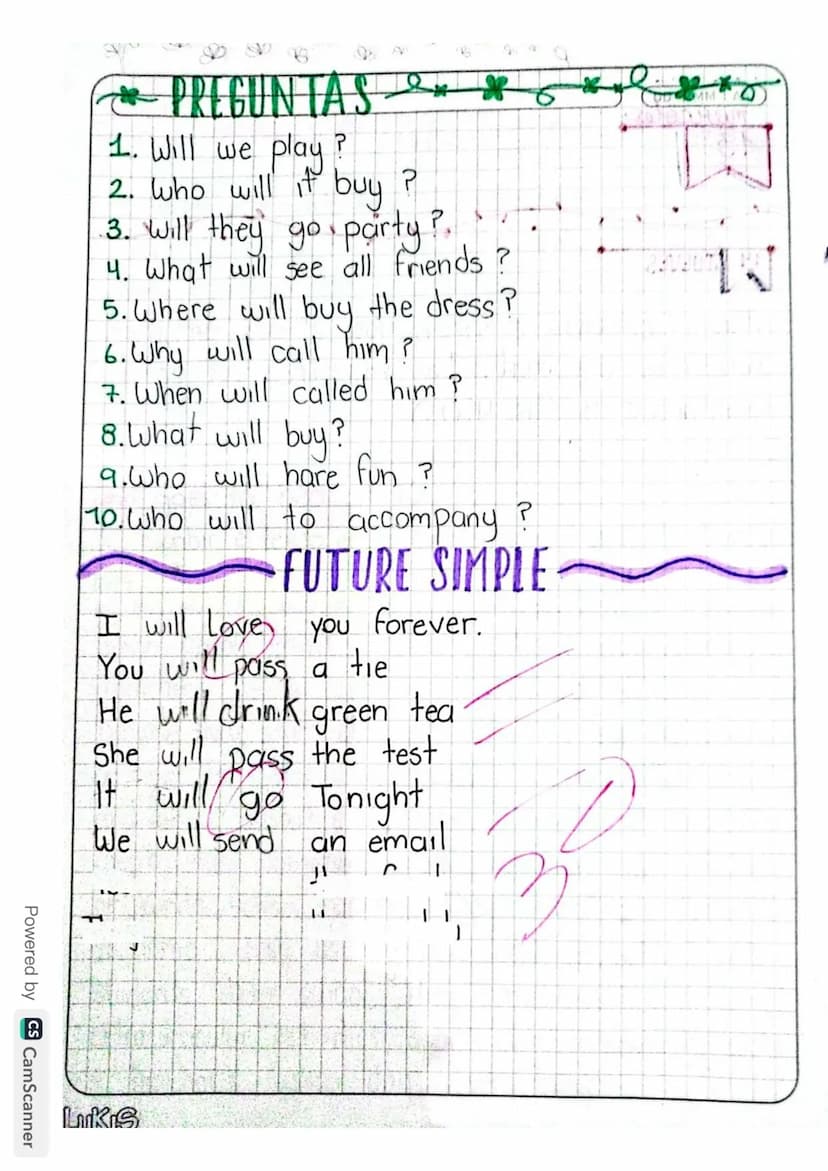 PREGUNTAS
1. Will we play?
2. Who will it buy?
3. Will they go party?
4. What will see all friends?
5. Where will buy the dress?
6. Why will call him?
7. When will called him?
8. What will buy?
9. Who will hare fun?
10. Who will to accompany?
FUTURE SIMPLE
I will love you forever.
You will pass a tie
He will drink green tea
She will pass the test
It will go Tonight
We will send an email
Powered by CS CamScanner
LUKIS